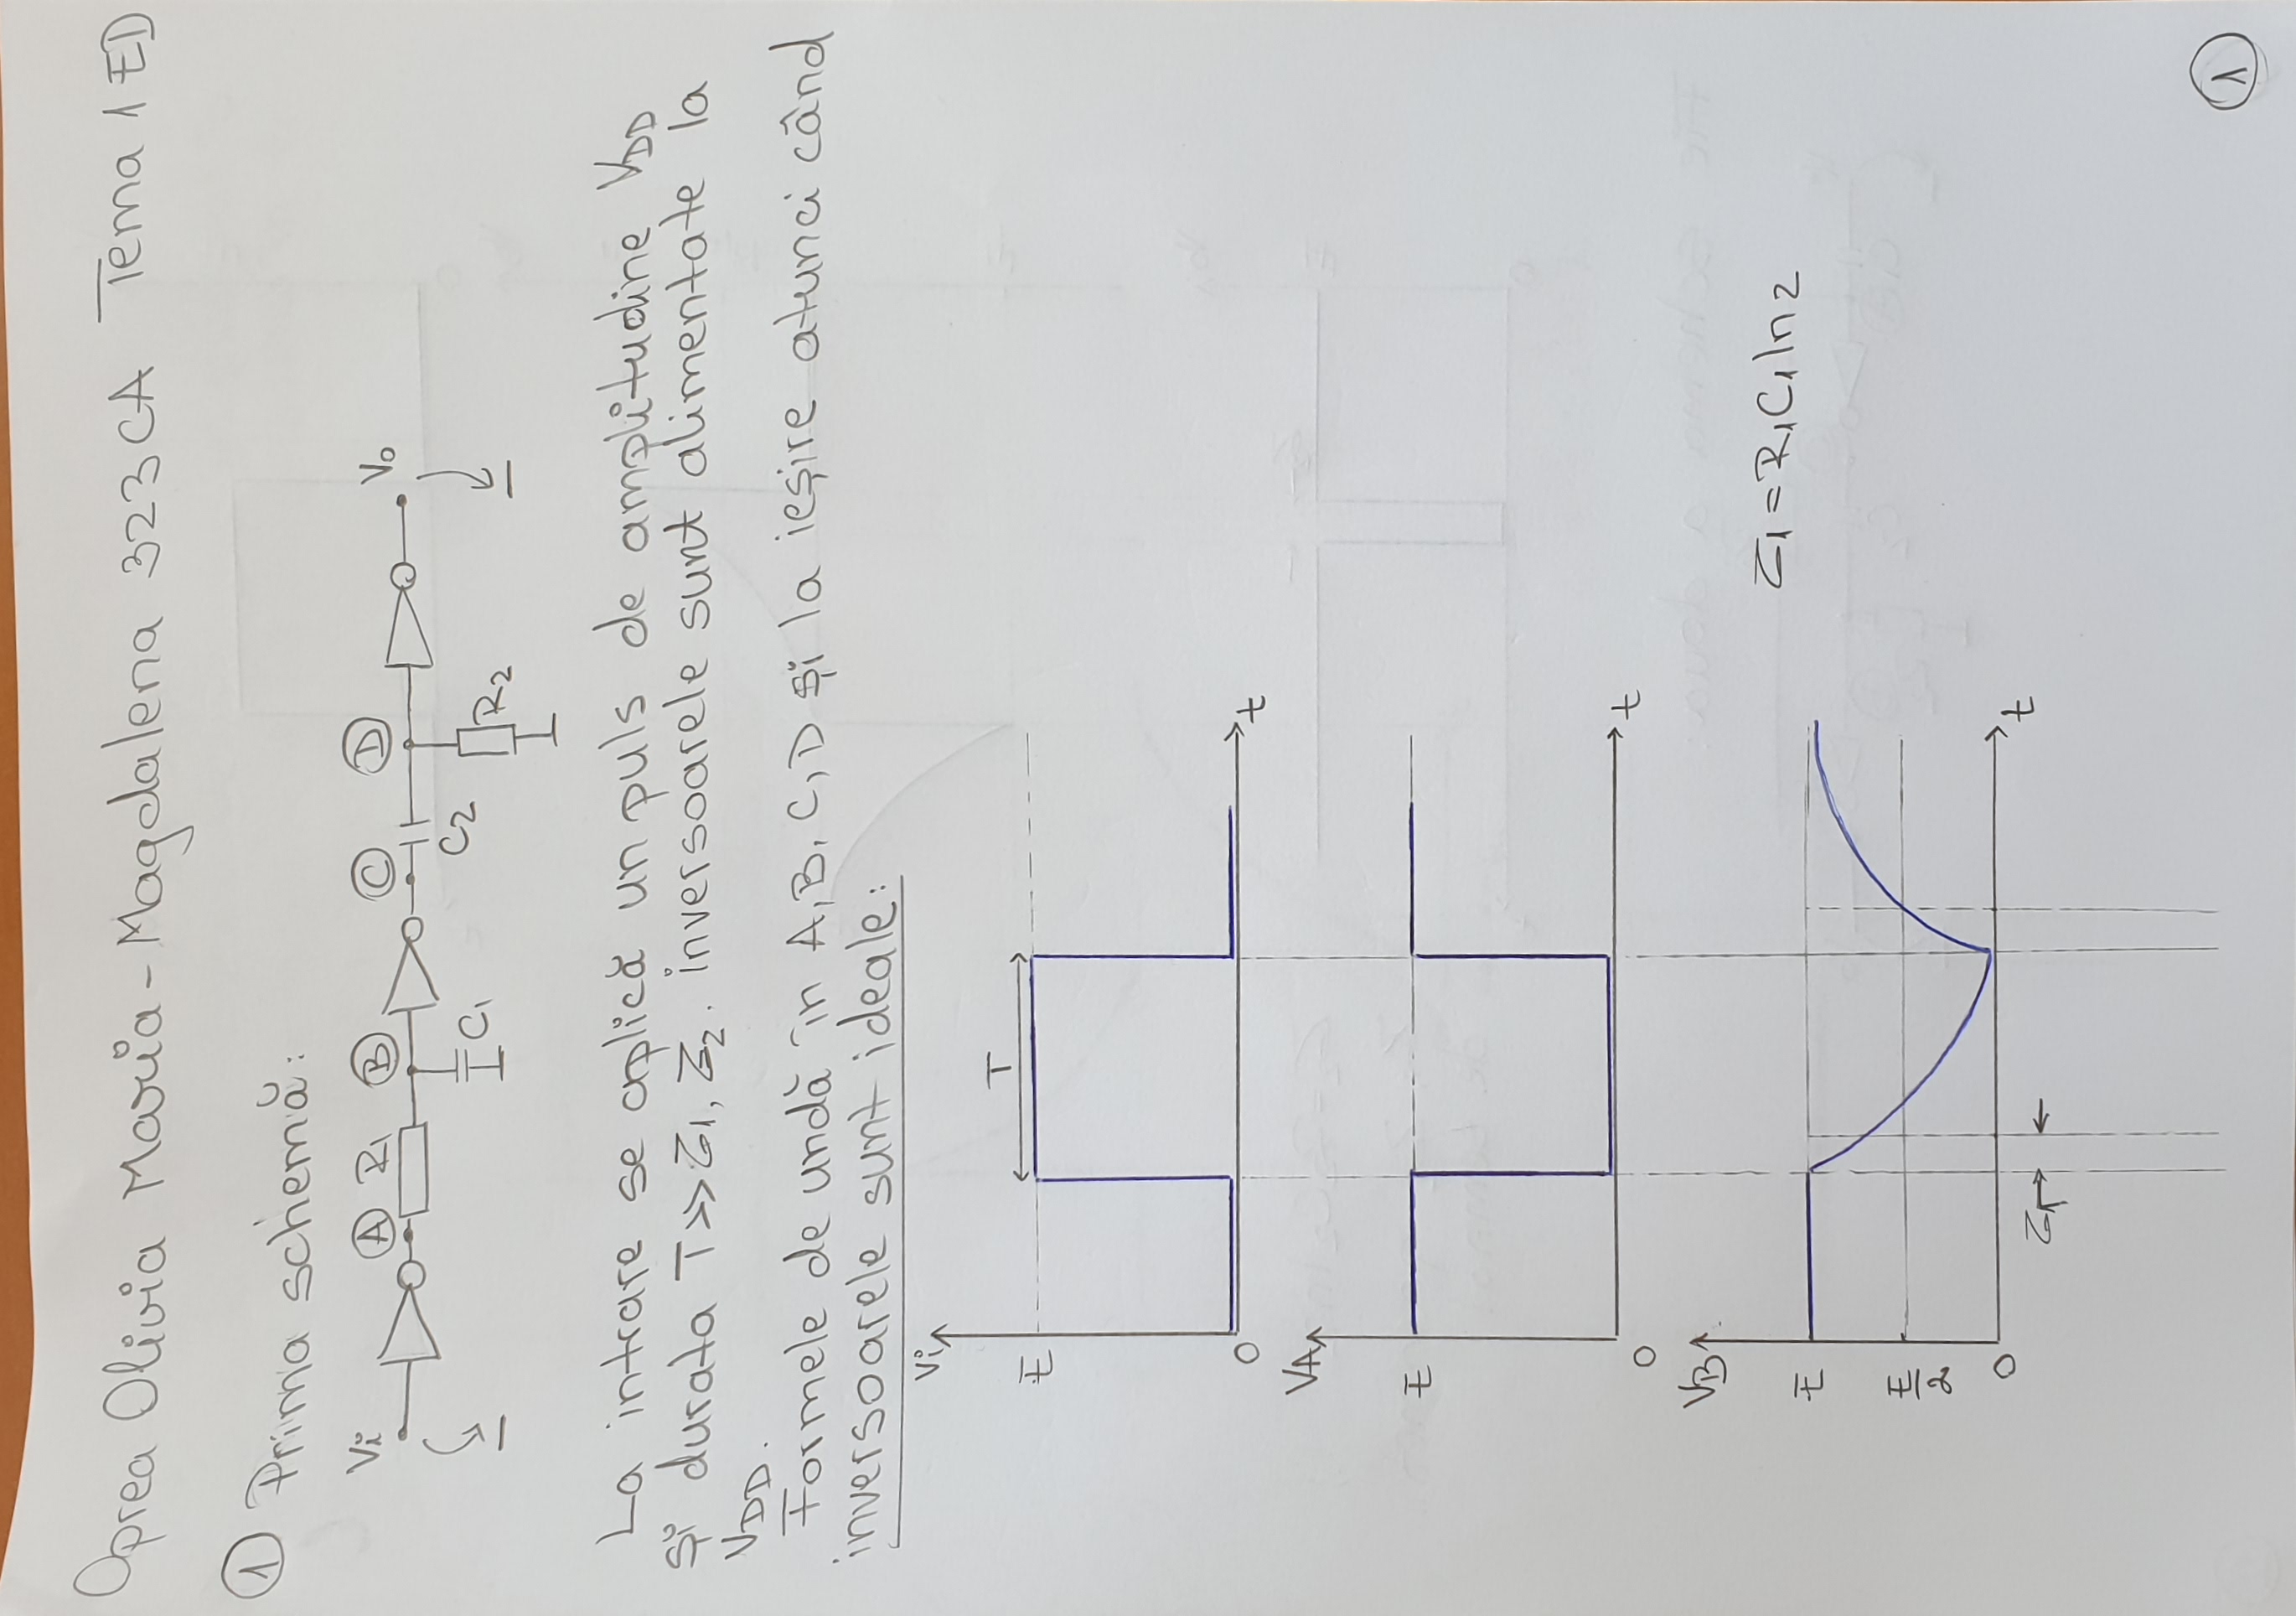 Oprea Olivia Maria-Magdalena 323CA Tema 1 ED
① Prima schemă:
Vi Ⓐ R1 Ⓑ Ⓒ Ⓓ Vo
C1 C2 R2
La intrare se aplică un puls de amplitudine VDD
și durata T≫τ1, τ2. inversoarele sunt alimentate la
VDD.
Formele de undă în A, B, C, D și la ieșire atunci când
inversoarele sunt ideale:
Vi
T
E
0 t
VA
E
0 t
VB
τ1 = R1C1 ln2
E
E/2
0 t
τ1
①